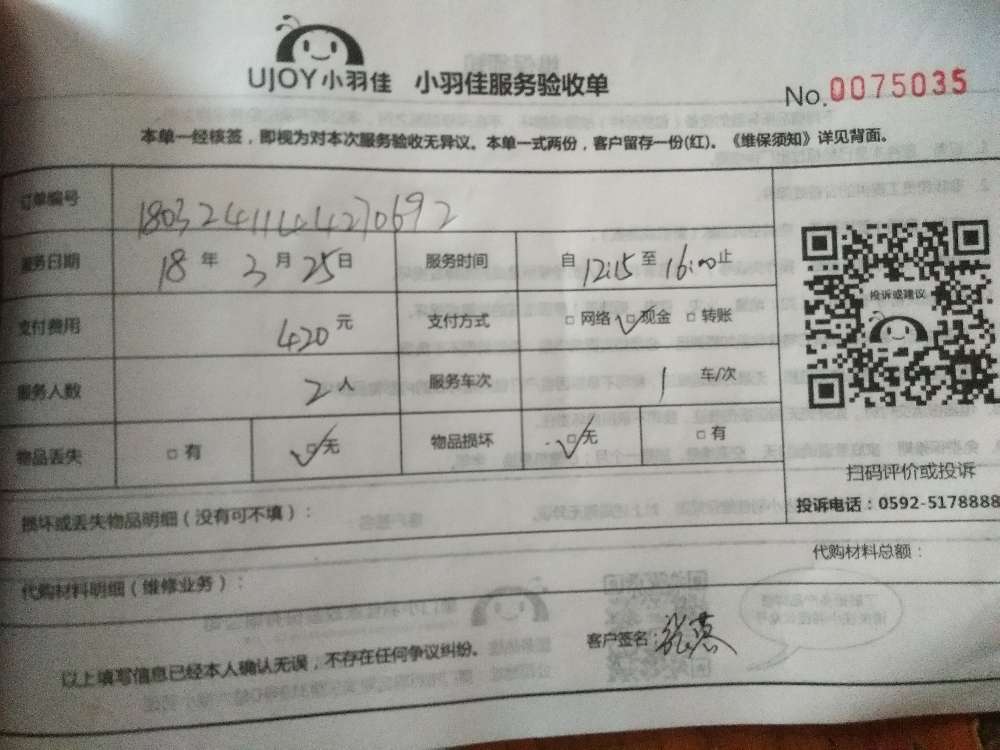 UJOY小羽佳 小羽佳服务验收单
No.0075035
本单一经核签，即视为对本次服务验收无异议。本单一式两份，客户留存一份(红)。《维保须知》详见背面。
订单编号 18032411444270692
服务日期 18年3月25日 服务时间 自12:15至16:00止
投诉或建议
支付费用 420元 支付方式 □网络 □现金 □转账
服务人数 2人 服务车次 1车/次
物品丢失 □有 □无 物品损坏 □无 □有
扫码评价或投诉
投诉电话：0592-5178888
损坏或丢失物品明细（没有可不填）：
代购材料总额：
代购材料明细（维修业务）：
以上填写信息已经本人确认无误，不存在任何争议纠纷。
客户签名：张